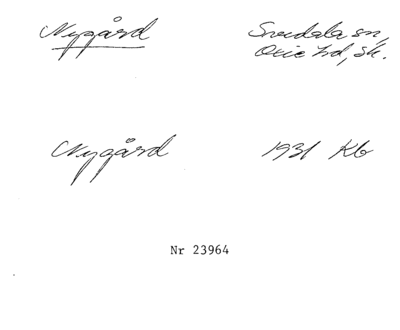 Nygård Svedala sn,
Oxie hd, Sk.
Nygård 1931 Kb
Nr 23964